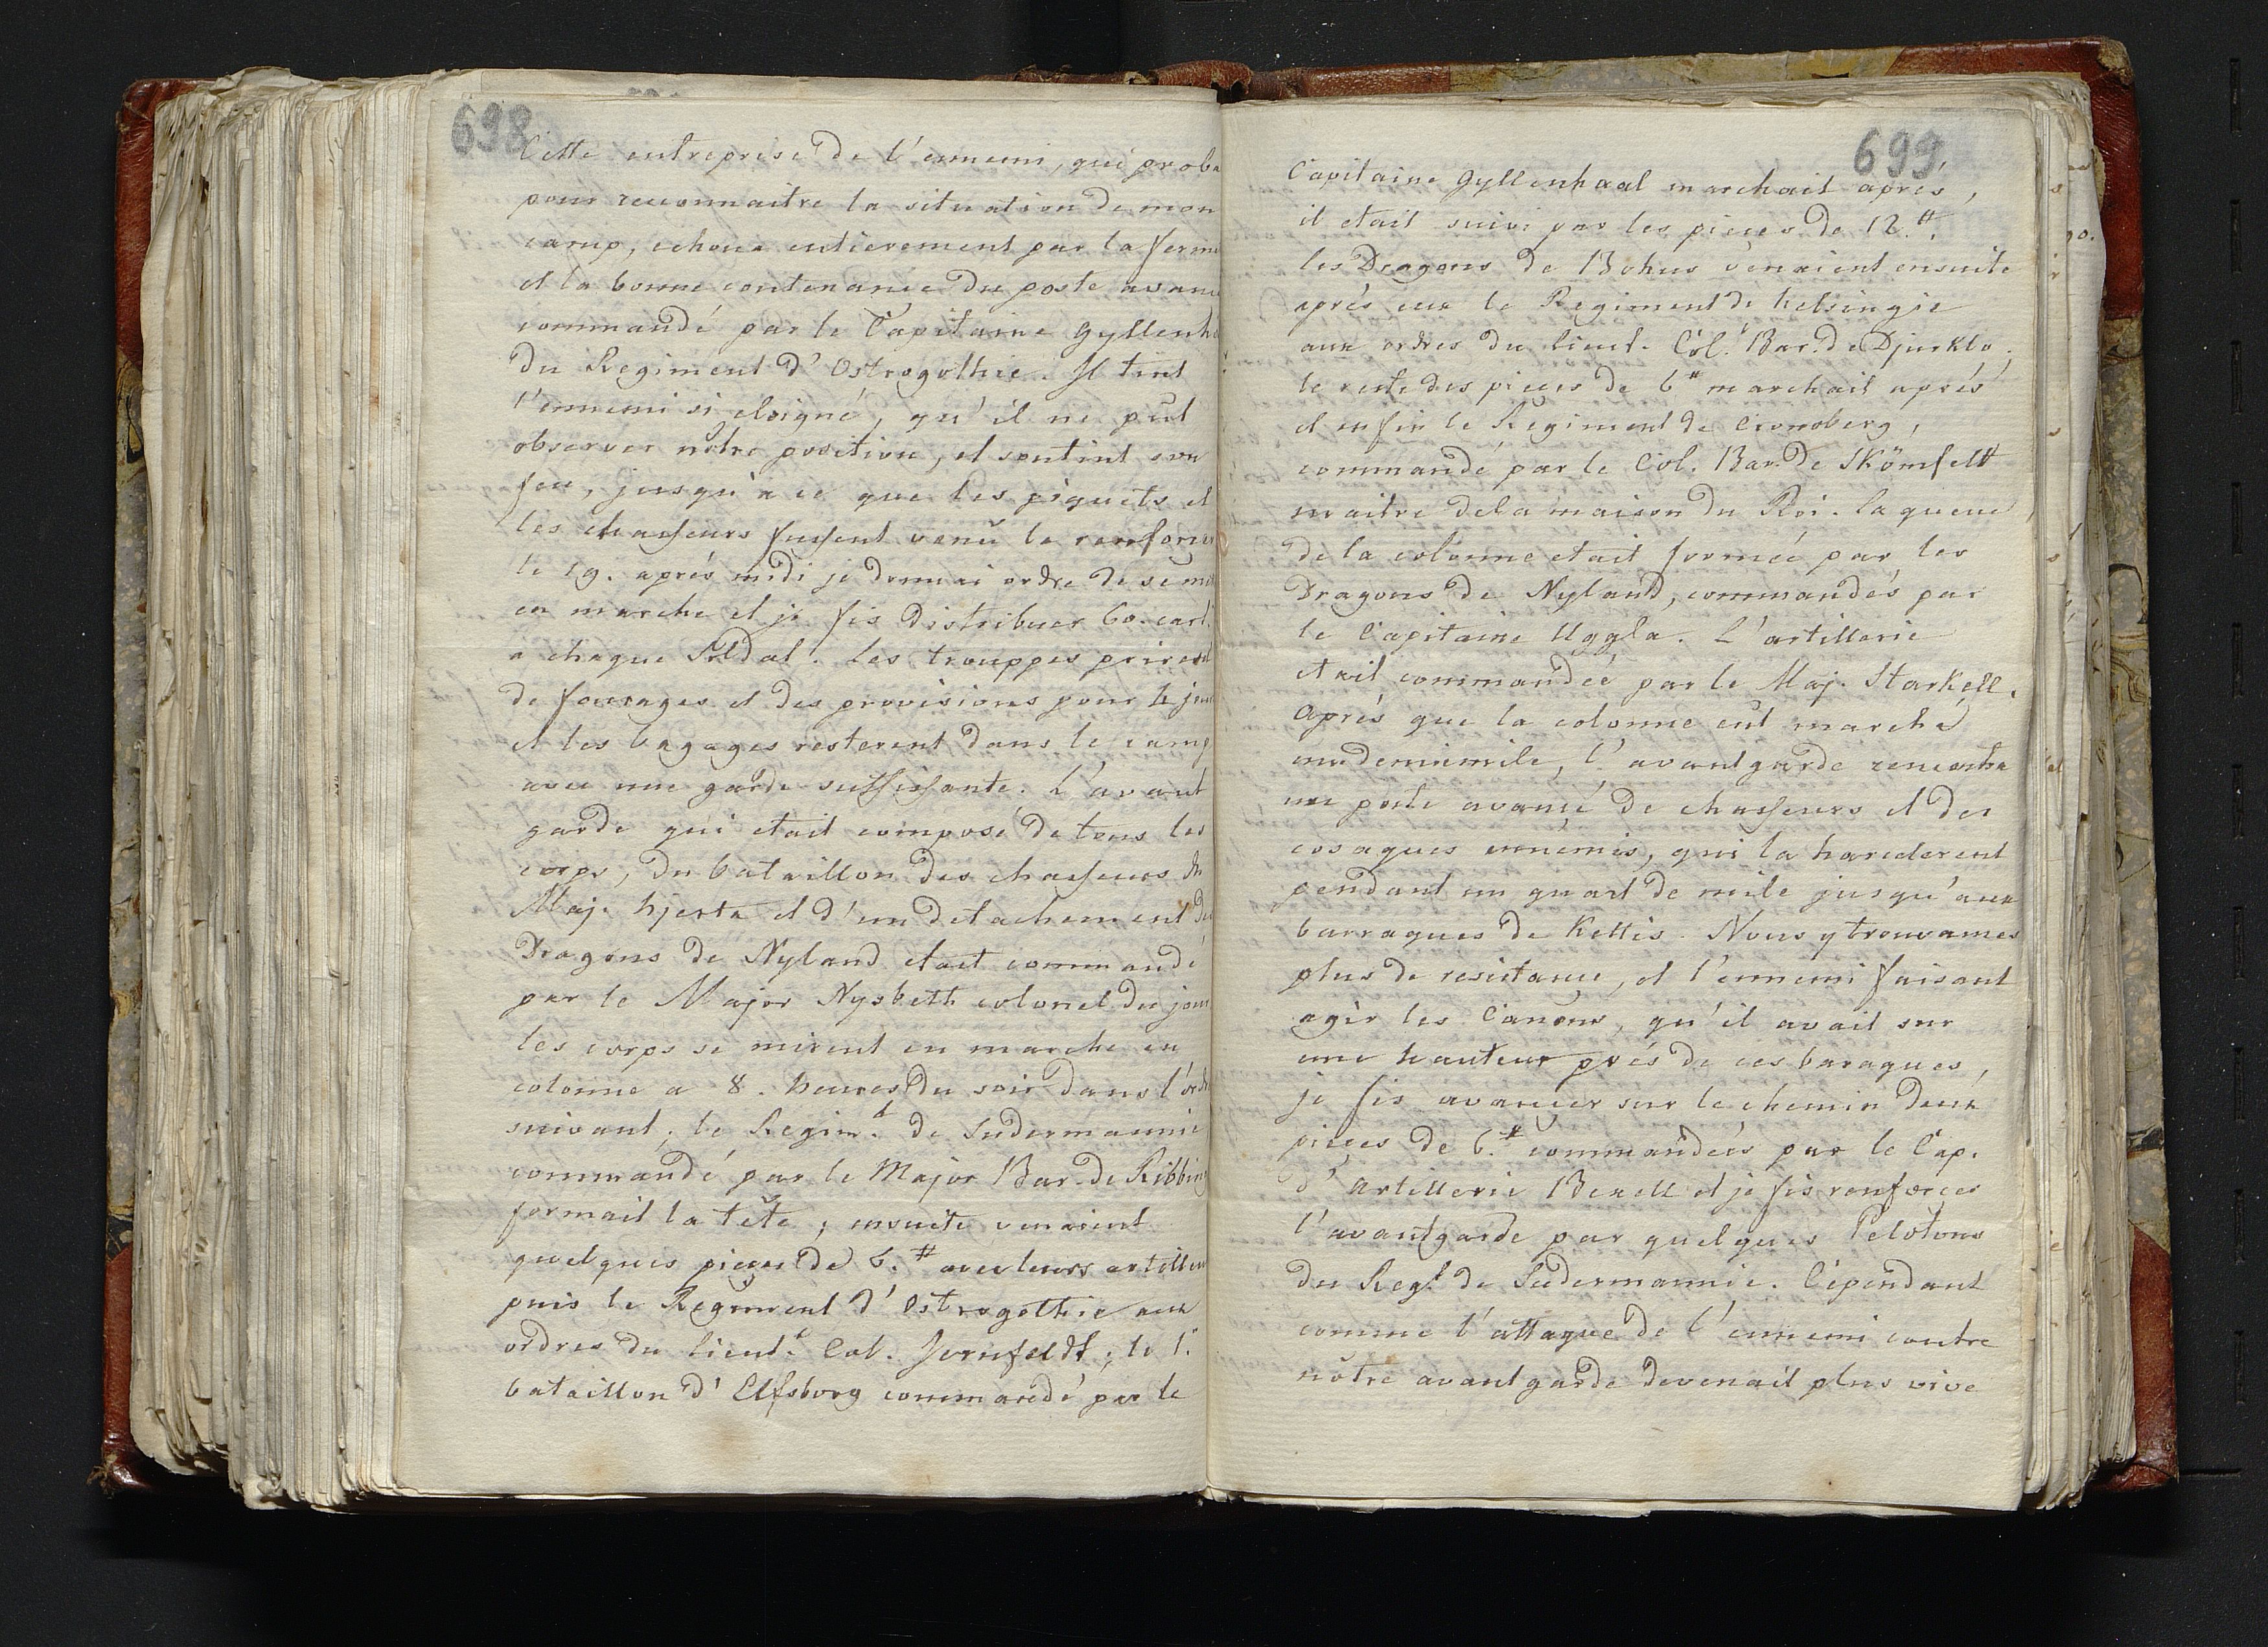 698
Cette entreprise de l'ennemi, qui proba
pour reconnaitre la situation de mon
camp, echoua entierement par la ferme
et la bonne contenance du poste avanc
commandé par le Capitaine Gyllenha
du Regiment d'Ostrogothie. Il tint
l'ennemi si eloigné, qu'il ne put
observer nôtre position, et soutint son
feu, jusqu'a ce que les piquets et
les chasseurs fussent venu le renforcer
le 19. aprés midi je donnai ordre de se met
en marche et je fis distribuer 60. cart.
a chaque Soldat. Les trouppes prirent
de fourages et des provisions pour 4 jour
et les bagages resterent dans le camp
avec une garde suffisante. L'avant
garde qui etait composé de tous les
corps, du bataillon des chasseurs du
Maj. Hjerta et d'un detachement de
Dragons de Nyland etait commandé
par le Major Nysbeth colonel du jour
les corps se mirent en marche en
colonne a 8. heures du soir dans l'ord
suivant; le Regim.t de Sudermannie
commandé par le Major Bar. de Ribbing
formait la tête; ensuite venaient
quelques pieces de 6.# avec leurs artilleu
puis le Regiment d'Ostrogothie aux
ordres du Lieut.t Col. Jernfeldt; le 1.r
bataillon d'Elfsborg commandé par le
699
Capitaine Gyllenhaal marchait aprés,
il etait suivi par les pieces de 12.#.
les Dragons de Bohus venaient ensuite
aprés eux le Regiment de Helsingie
aux ordres du Lieut. Col. Bar. de Djurklo;
le reste des pieces de 6# marchait aprés
et enfin le Regiment de Cronoberg,
commandé par le Col. Bar. de Skömfelt
maitre de la maison du Roi. la queue
de la colonne etait formée par les
Dragons de Nyland, commandés par
le Capitaine Uggla. L'artillerie
etait commandée par le Maj. Starkell.
Aprés que la colonne eut marché
un demimile, l'avantgarde rencontra
un poste avancé de chasseurs et des
cosaques ennemis, qui la harcelerent
pendant un quart de mile jusqu'aux
barraques de Keltis. Nous y trouvames
plus de resistance, et l'ennemi faisant
agir les Canons, qu'il avait sur
une hauteur prés de ces baraques,
je fis avancer sur le chemin deux
pieces de 6.# commandées par le Cap.
d'Artillerie Bexell et je fis renforcer
l'avantgarde par quelques Pelotons
du Reg.t de Sudermannie. Cependant
comme l'attaque de l'ennemi contre
nôtre avantgarde devenait plus vive